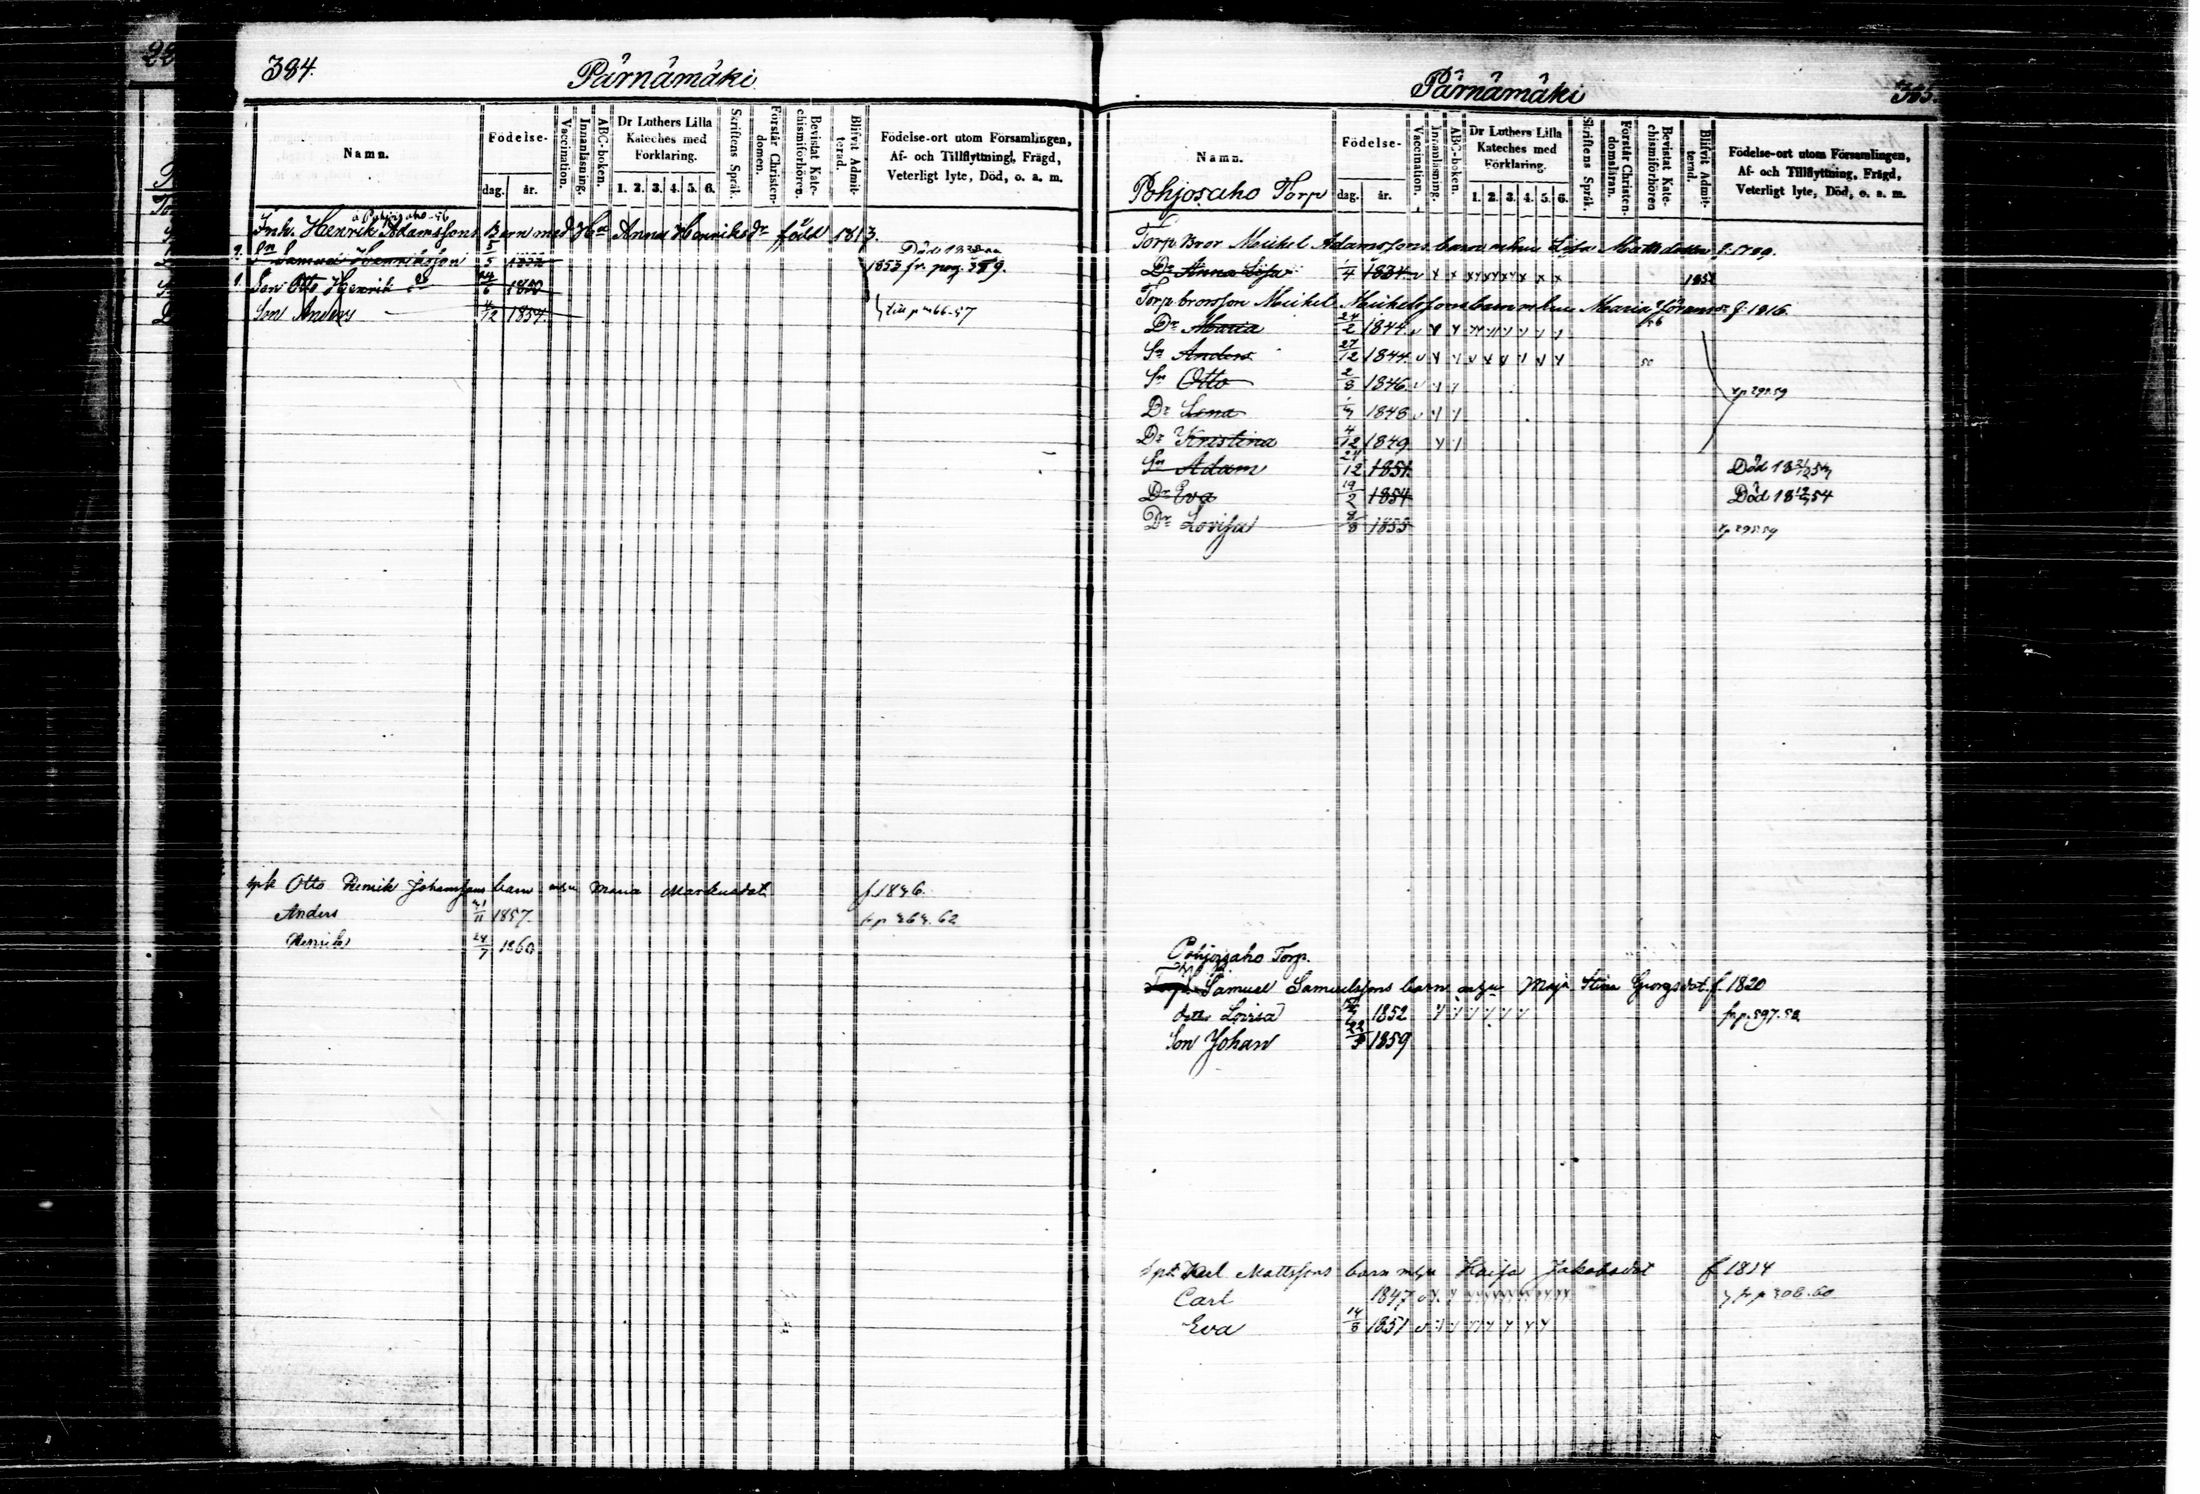 384.
Pärnämäki
Namn.
Födelse-
dag. år.
Vaccination.
Innanläsning.
ABC-boken.
Dr Luthers Lilla Kateches med Förklaring.
1. 2. 3. 4. 5. 6.
Skriftens Språk.
Förstår Christendomen.
Bevistat Katechismiförhören.
Blifvit Admitterad.
Födelse-ort utom Församlingen, Af- och Tillflyttningl, Frägd, Veterligt lyte, Död, o. a. m.
å Pohjosaho -56
Inh. Henrik Adamssons Barn med Ha Anna Henriksdr född 1813.
Sn Samuel 5/5
Död
Son Otto Henrik 24/6 1850 1853 fr. pag. 379.
Son Anders 4/12 1854 till p 466-57
Otto Henrik Johanssons barn m hu Maria Markusdot f. 1836.
Anders 21/11 1857. fr p 363. 62
Henrik 24/7 1860
Pärnämäki
385.
Namn.
Födelse-
dag. år.
Vaccination.
Innanläsning.
ABC-boken.
Dr Luthers Lilla Kateches med Förklaring.
1. 2. 3. 4. 5. 6.
Skriftens Språk.
Förstår Christendomsläran.
Bevistat Katechismiförhören
Blifvit Admitterad.
Födelse-ort utom Församlingen, Af- och Tillflyttning, Frägd, Veterligt lyte, Död, o. a. m.
Pohjosaho Torp
Torp Bror Mickel Adamssons barn m hu Lisa Mattsdotter f. 1799.
Dr Anna Lisa 1/4 1834 1852
Torp brorson Mickel Mickelssons barn m hu Maria Göransdr f. 1816.
Dr Maria 24/2 1844
Sn Anders 27/12 1844
Sn Otto 2/8 1846
Dr Lena 1/7 1848
Dr Kristina 4/12 1849
Sn Adam 24/12 1851 Död
Dr Eva 19/2 1854 Död 18 12/7 54
Dr Lovisa 8/8 1855
Pohjosaho Torp.
Samuel Samuelssons barn m hu Maja Stina Georgsdot f 1820
dotter Lovisa 1852 fr p. 597. 58
Son Johan 22/3 1859
Karl Mattssons barn m hu Kaisa Jakobsdot f 1814
Carl 1847 fr p 308. 60
Eva 14/8 1851